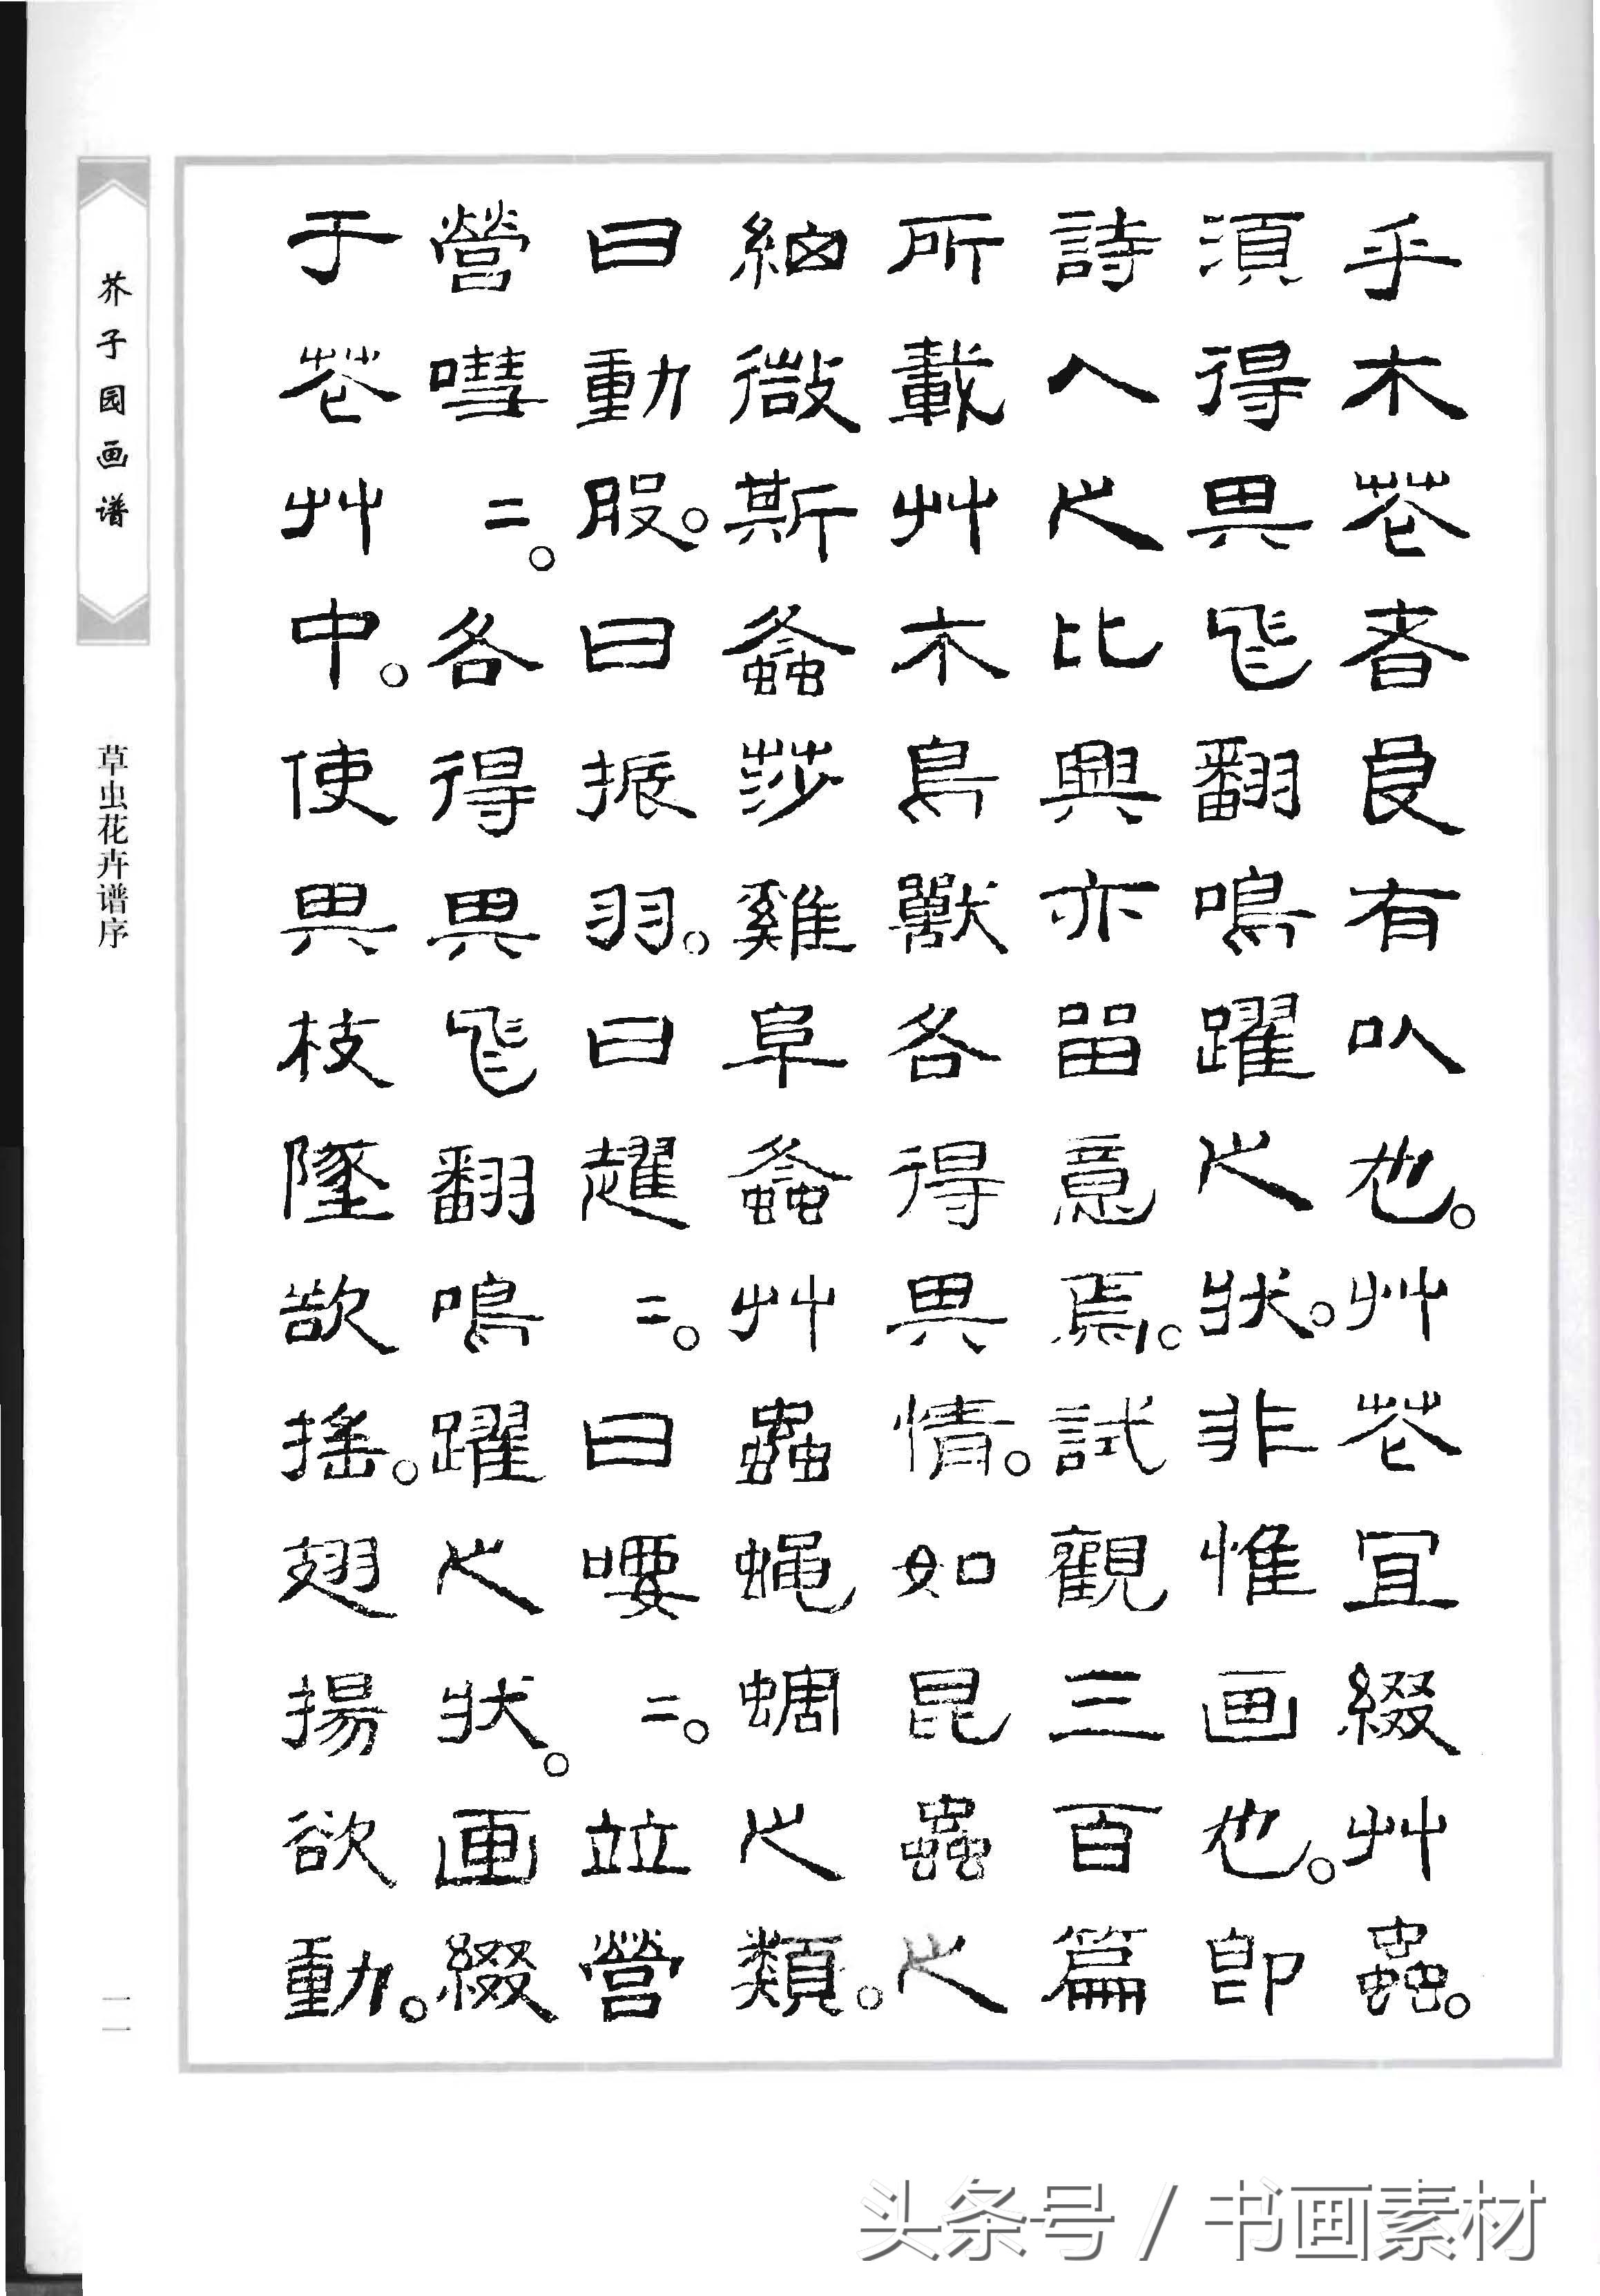 乎木花者良有以也。艸花宜綴艸蟲。
須得其飛翻鳴躍之狀。非惟画也。即
詩人之比興亦畱意焉。試觀三百篇
所載艸木鳥獸各得其情。如昆蟲之
細微斯螽莎雞阜螽艸蟲蠅蜩之類。
曰動股。曰振羽。曰趯二。曰喓二。竝營
營嘒二。各得其飛翻鳴躍之狀。画綴
于花艸中。使其枝墜欲搖。翅揚欲動。
芥子园画谱
草虫花卉谱序
一一
头条号 / 书画素材